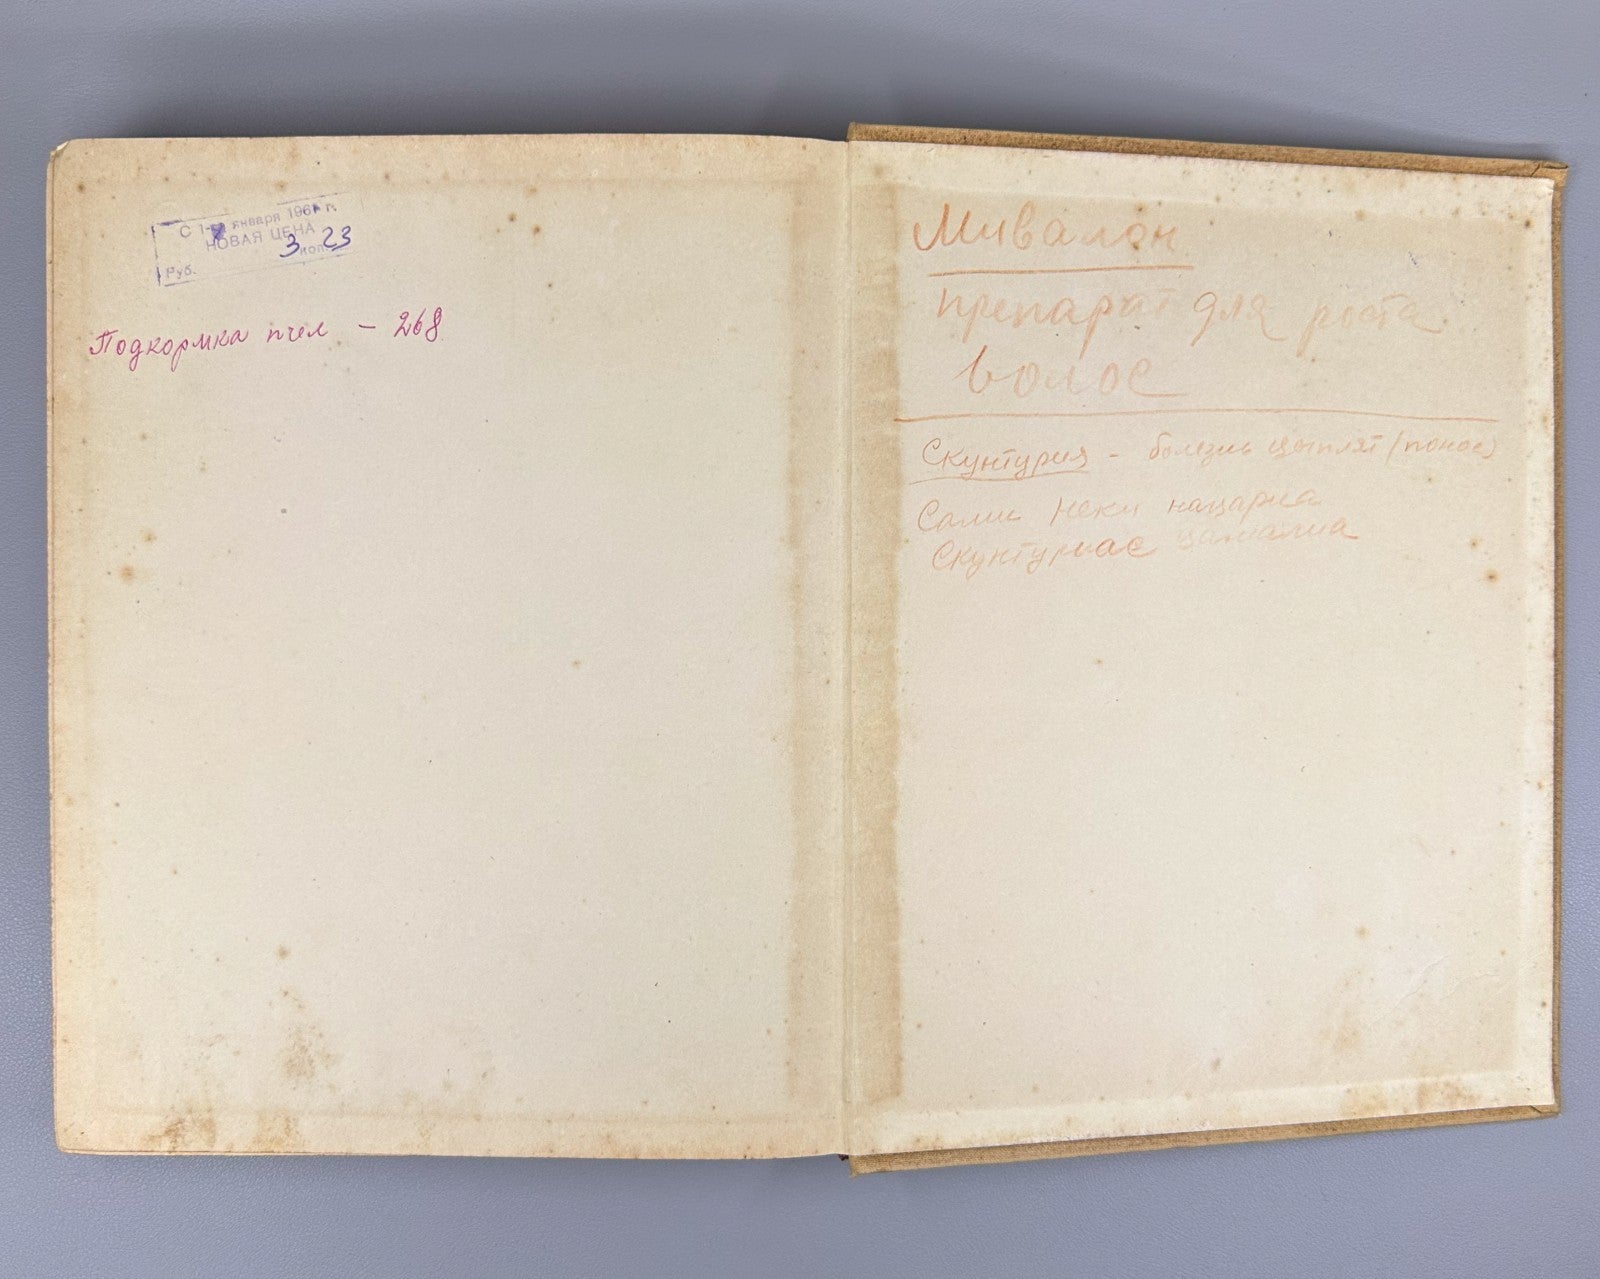 С 1-го января 1961 г.
НОВАЯ ЦЕНА
Руб. 3 коп. 23
Подкормка пчел - 268
Мивалон
препарат для роста
волос
Скунтурия - болезнь цыплят (понос)
Сами неки нацариа
Скунтуриас цамалиа